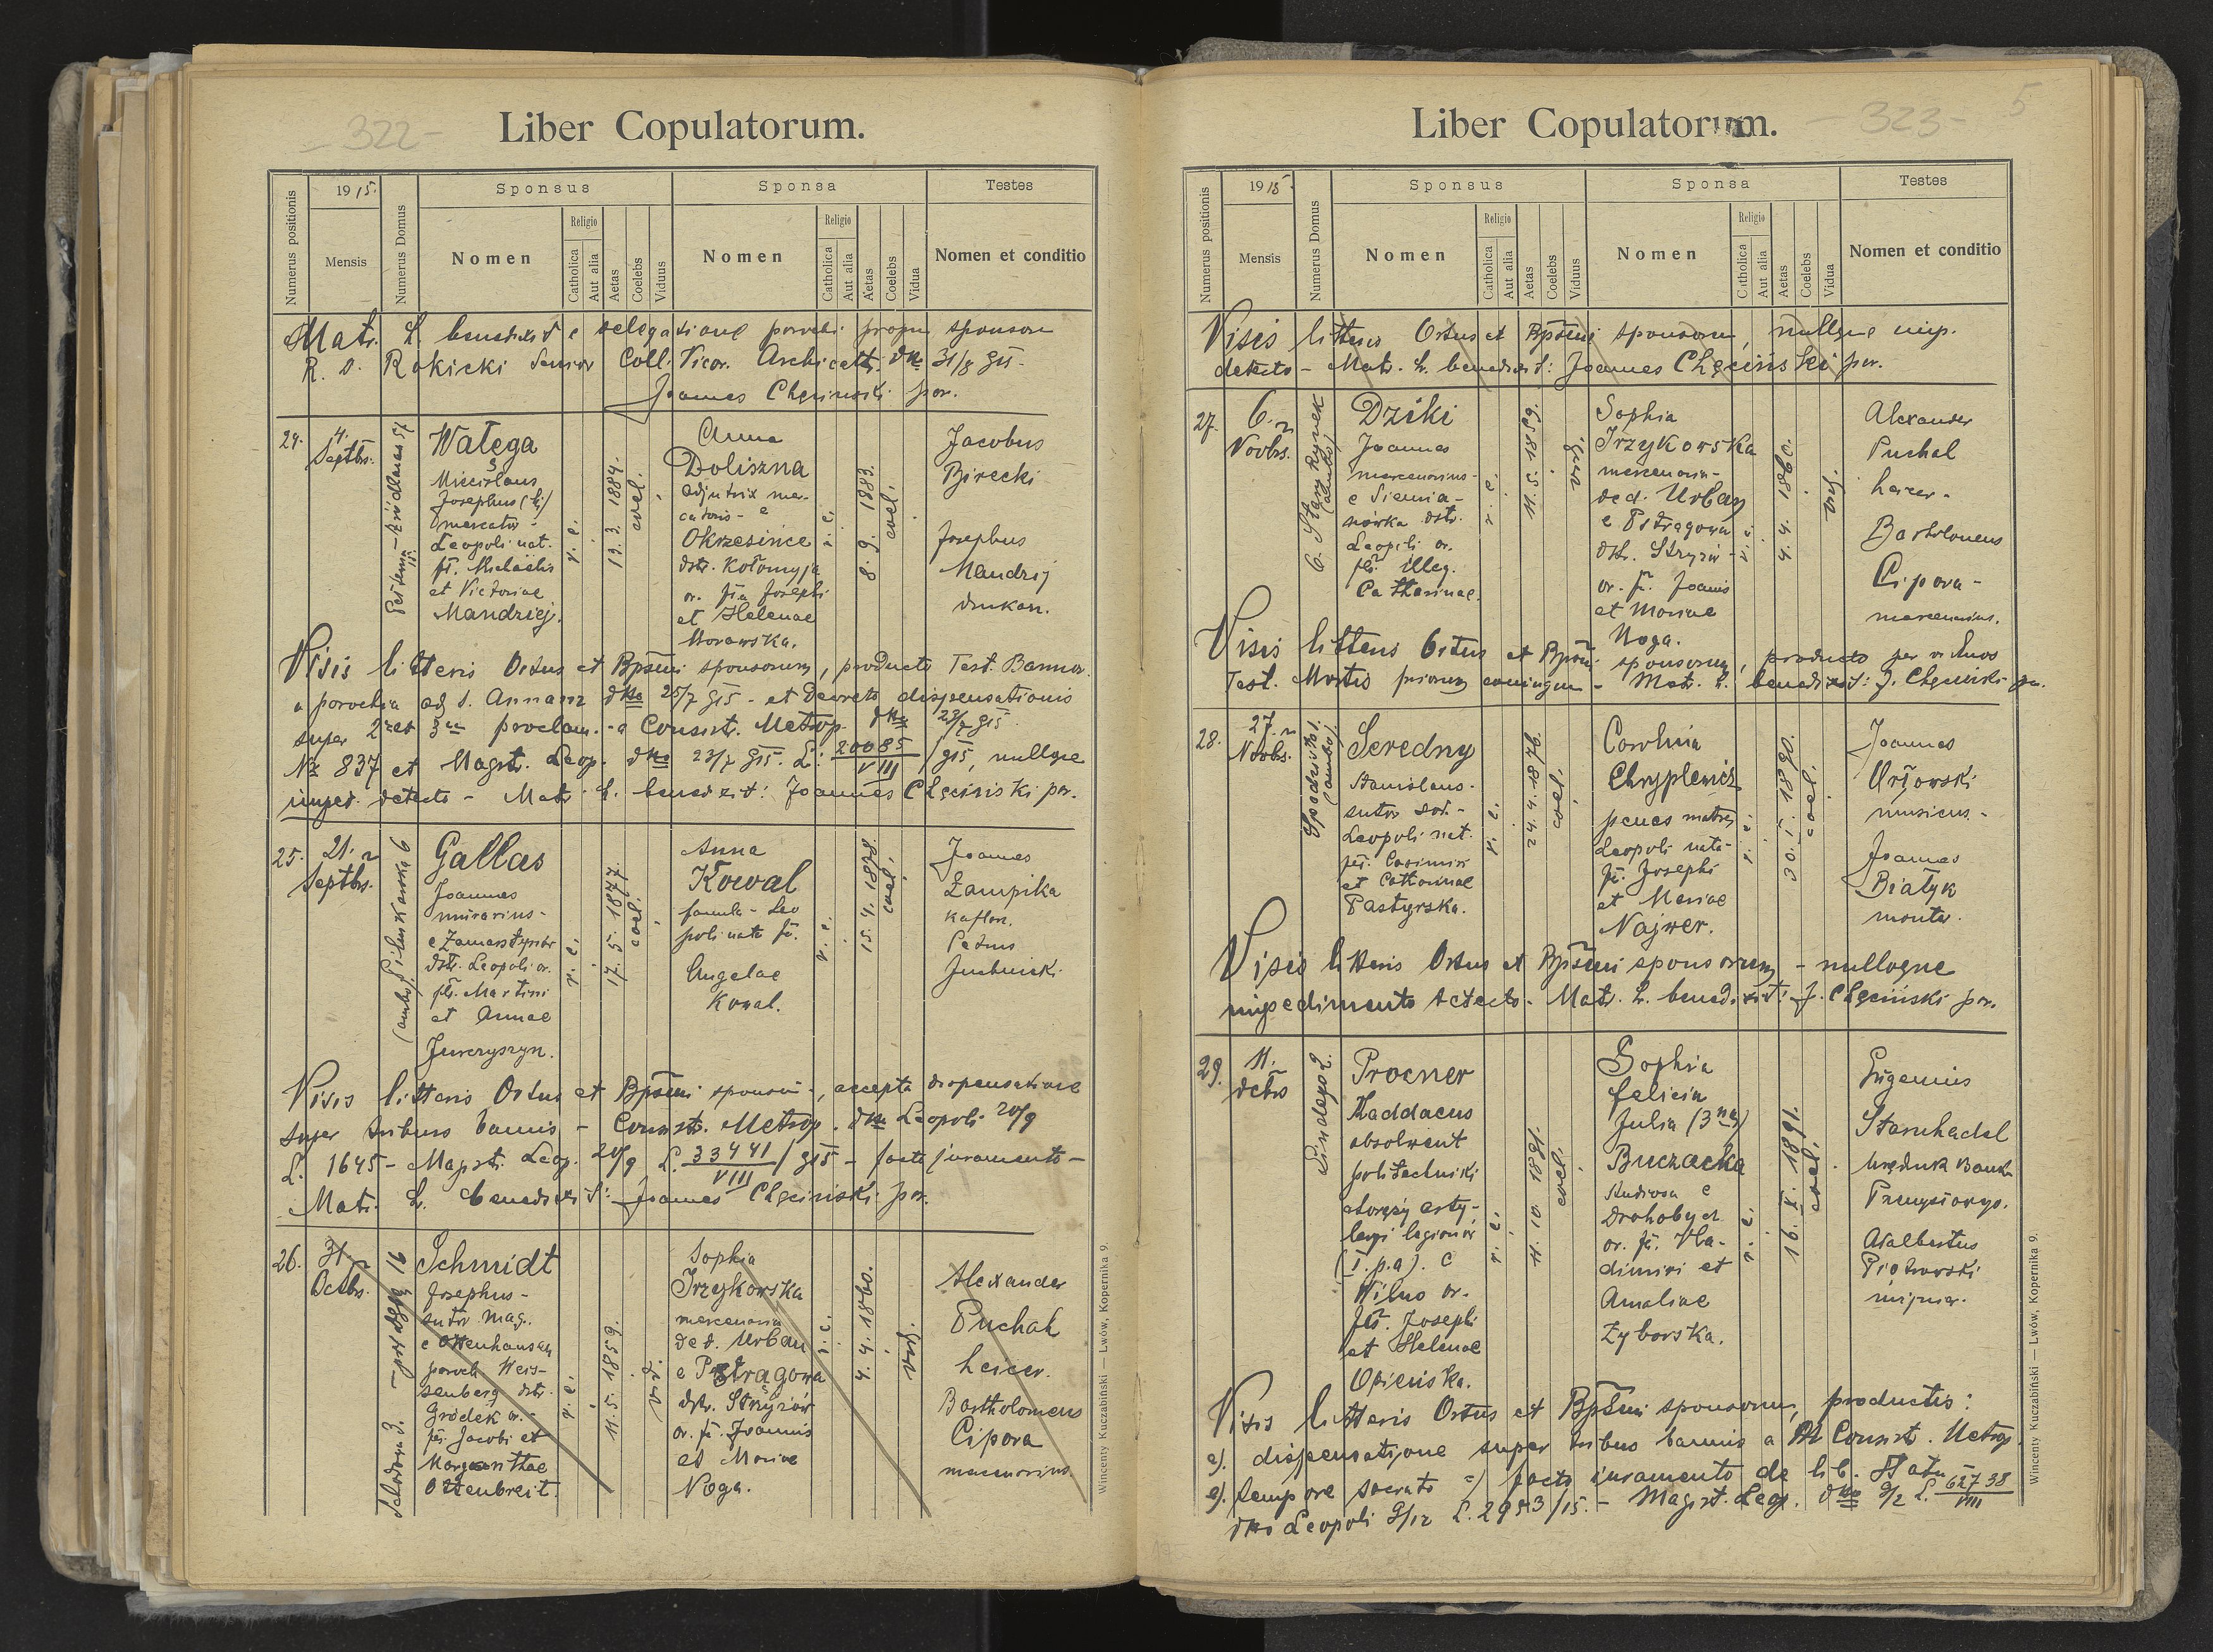 322 -
Liber Copulatorum.
Numerus positionis
1915.
Mensis
Numerus Domus
Sponsus
Nomen
Religio
Catholica
Aut alia
Aetas
Coelebs
Viduus
Sponsa
Nomen
Religio
Catholica
Aut alia
Aetas
Coelebs
Vidua
Testes
Nomen et conditio
Matr. L. benedixit e delegatione parochi proprii sponsorum
R. D. Rokicki Senior Coll. Vicar. Archicath. dtto 31/8 915.
Joannes Chęciński par.
24.
4.
Septbr.
Wałęga
Miecislaus
Josephus
mercator -
Leopoli nat.
fil. Michaëlis
et Victoriae
Mandziej.
r. c.
19. 3. 1884.
coel.
Anna
Doliszna
adjutrix mer-
catoris - e
Okrzesińce
dstr. Kołomyja
or. fia Josephi
et Helenae
Morawska.
8. 9. 1883.
coel.
Jacobus
Birecki
Josephus
Mandzij
drukarz.
Visis litteris Ortus et Bpsmi sponsorum, producto Test. Bannor.
a parochia ad S. Annam dtto 25/7 915 - et Decreto dispensationis
super 2da et 3tia proclam. - a Consist. Metrop. dtto 23/7 915.
No 837 et Magistr. Leop. dtto 23/7 915. L: 20085/VIII /915, nulloque
imped. detecto - Matr. L. benedixit: Joannes Chęciński par.
25.
21.
Septbr.
Gallas
Joannes
murarius -
e Zamarstynów
dstr. Leopoli or.
fil. Martini
et Annae
Jurczyszyn.
r. c.
17. 5. 1877.
coel.
Anna
Kowal
famula - Leo
poli nata fil.
Angelae
Kowal.
r. c.
15. 4. 1878.
coel.
Joannes
Zampika
kaflarz.
Petrus
Visis litteris Ortus et Bpsmi sponsor., accepta dispensatione
super tribus bannis - Consist. Metrop. dtto Leopoli 20/9
L. 1645 - Magistr. Leop. 20/9 L. 33441/VIII / 915 - facto juramento -
Matr. L. benedixit: Joannes Chęciński par.
26.
31.
Octbr.
Schmidt
Josephus -
sutor mag.
e Ottenhausen
paroch. Weis-
senberg dstr.
Gródek or.
fil. Jacobi et
Margarithae
Ottenbreit.
r. c.
11. 5. 1859.
vid.
Sophia
Irzykowska
mercenaria
de d. Urban
e Pstrągowa
dstr. Strzyżów
or. fil. Joannis
et Mariae
Noga.
r. c.
4. 4. 1860.
vid.
Alexander
Puchal
heicer.
Bartholomeus
Cipora
mercenarius.
Wincenty Kuczabiński — Lwów, Kopernika 9.
323 -
5
Liber Copulatorum.
Numerus positionis
1915.
Mensis
Numerus Domus
Sponsus
Nomen
Religio
Catholica
Aut alia
Aetas
Coelebs
Viduus
Sponsa
Nomen
Religio
Catholica
Aut alia
Aetas
Coelebs
Vidua
Testes
Nomen et conditio
Visis litteris Ortus et Bpsmi sponsorum, nulloque imp.
detecto - Matr. L. benedixit: Joannes Chęciński par.
27.
6.
Novbr.
6. Stary Rynek
(ambo)
Dziki
Joannes
mercenarius -
e Siemia-
nówka dstr.
Leopoli or.
fil. illeg.
Catharinae.
r. c.
11. 5. 1859.
vid.
Sophia
Irzykowska
mercenaria -
de d. Urban
e Pstrągowa
dstr. Strzyżów -
or. fil. Joannis
et Mariae
Noga.
r. c.
4. 4. 1860.
vid.
Alexander
Puchal
heicer -
Bartholomeus
Cipora -
mercenarius.
Visis litteris Ortus et Bpsmi sponsorum, producto per viduos
Test. Mortis priorum conjugum - Matr. L. benedixit: J. Chęciński par.
28.
27.
Novbr.
Seredny
Stanislaus -
sutor sod. -
Leopoli nat.
fil. Casimiri
et Catharinae
Pastyrska.
r. c.
24. 4. 1876.
coel.
Carolina
Chryplewicz
penes matrem
Leopoli nata
fil. Josephi
et Mariae
Najwer.
r. c.
30. 1. 1890.
coel.
Joannes
Orłowski
musicus -
Joannes
Białyk
monter.
Visis litteris Ortus et Bpsmi sponsorum - nulloque
impedimento detecto - Matr. L. benedixit: J. Chęciński par.
29.
11.
Dcbr
Lindego 2.
Procner
Thaddaeus
absolwent
politechniki
chorąży arty-
leryi legionów
(I. p. a). e
Wilno or.
fil. Josephi
et Helenae
Opieńska.
r. c.
11. 10. 1891.
coel.
Sophia
Felicia
Julia (3 na)
Buczacka
studiosa e
Drohobycz
or. fil. Vla-
dimiri et
Amaliae
Zyborska.
r. c.
16. X. 1891.
coel.
Eugenius
Starnhadel
urzędnik Banku
Przemysłowego.
Adalbertus
Piotrowski
inżynier.
Visis litteris Ortus et Bpsmi sponsorum, productis:
a). dispensatione super tribus bannis a M Consist. Metrop.
e). tempore sacrato =) facto juramento de lib. Statu
dtto Leopoli 9/12 L. 2953/15. - Magist. Leop. dtto 9/2 L. 62738/VIII
Wincenty Kuczabiński — Lwów, Kopernika 9.